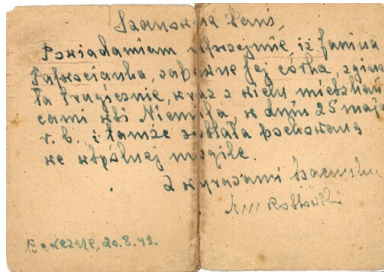 Szanowna Pani,
Powiadamiam uprzejmie iż Janina
zapewne Jej córka, zginę
ła tragicznie, wraz z wielu mieszkań
cami wsi Niemiła, w dniu 25 maja
r. b. i tamże została pochowana
we wspólnej mogile.
Z wyrazami szacunku
20.8.43.